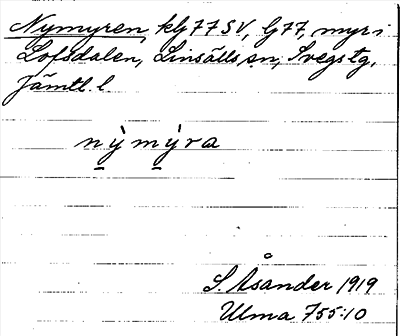 Nymyren, kG 77 SV, G77, myr i
Lofsdalen, Linsälls sn, Svegs tg,
Jämtl. l
nỳmỳra
S. Åsander 1919
Ulma 755:10